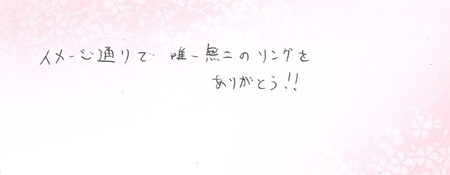 イメージ通りで 唯一無二のリングを
ありがとう!!